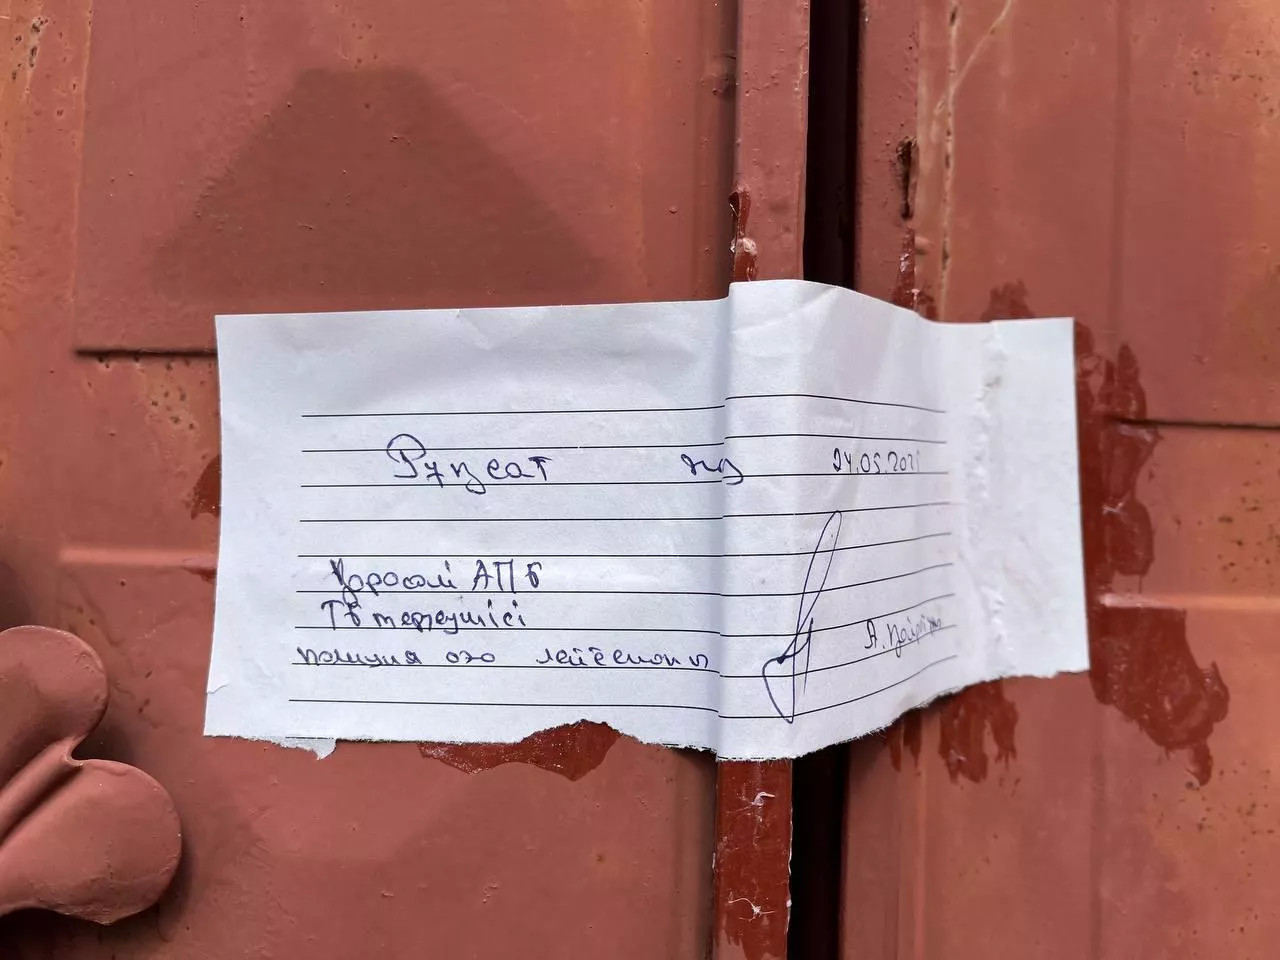 Рұқсат жоқ 24.05.202
Қарасай АПБ
ТБ тергеушісі
полиция аға лейтенанты
А.